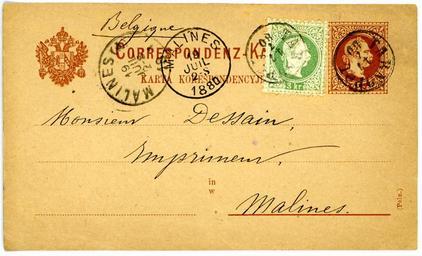 Belgique
CORRESPONDENZ-KA
KARTA KORESPONDENCYJ
MALINES
MALINES
1880
3 kr
Monsieur Dessain,
Imprimeur,
in
w
Malines.
(Poln.)